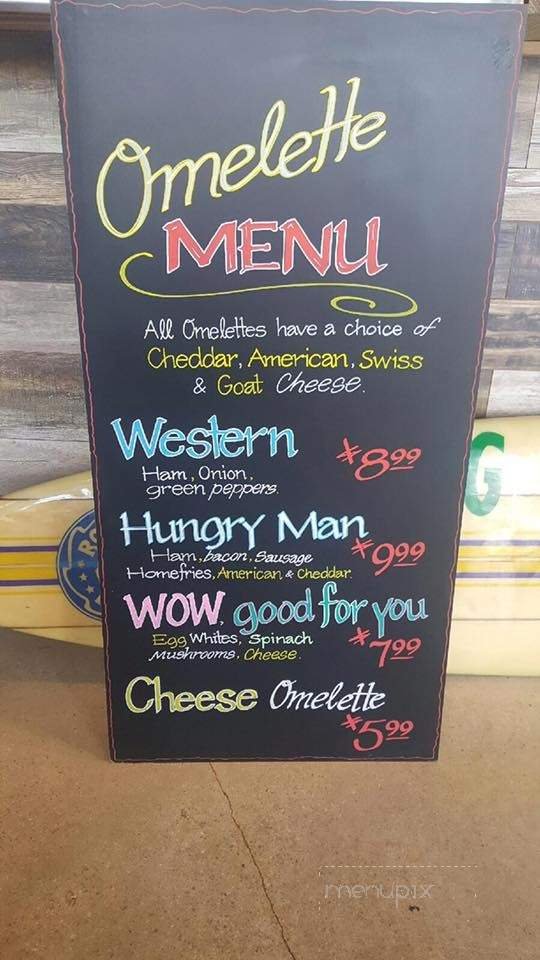 Omelette
MENU
All Omelettes have a choice of
Cheddar, American, Swiss
& Goat Cheese.
Western
Ham, Onion,
green peppers.
$8.99
Hungry Man
Ham, bacon, Sausage
Homefries, American & Cheddar.
$9.99
WOW, good for you
Egg Whites, Spinach
Mushrooms, Cheese.
$7.99
Cheese Omelette
$5.99
G
menupix